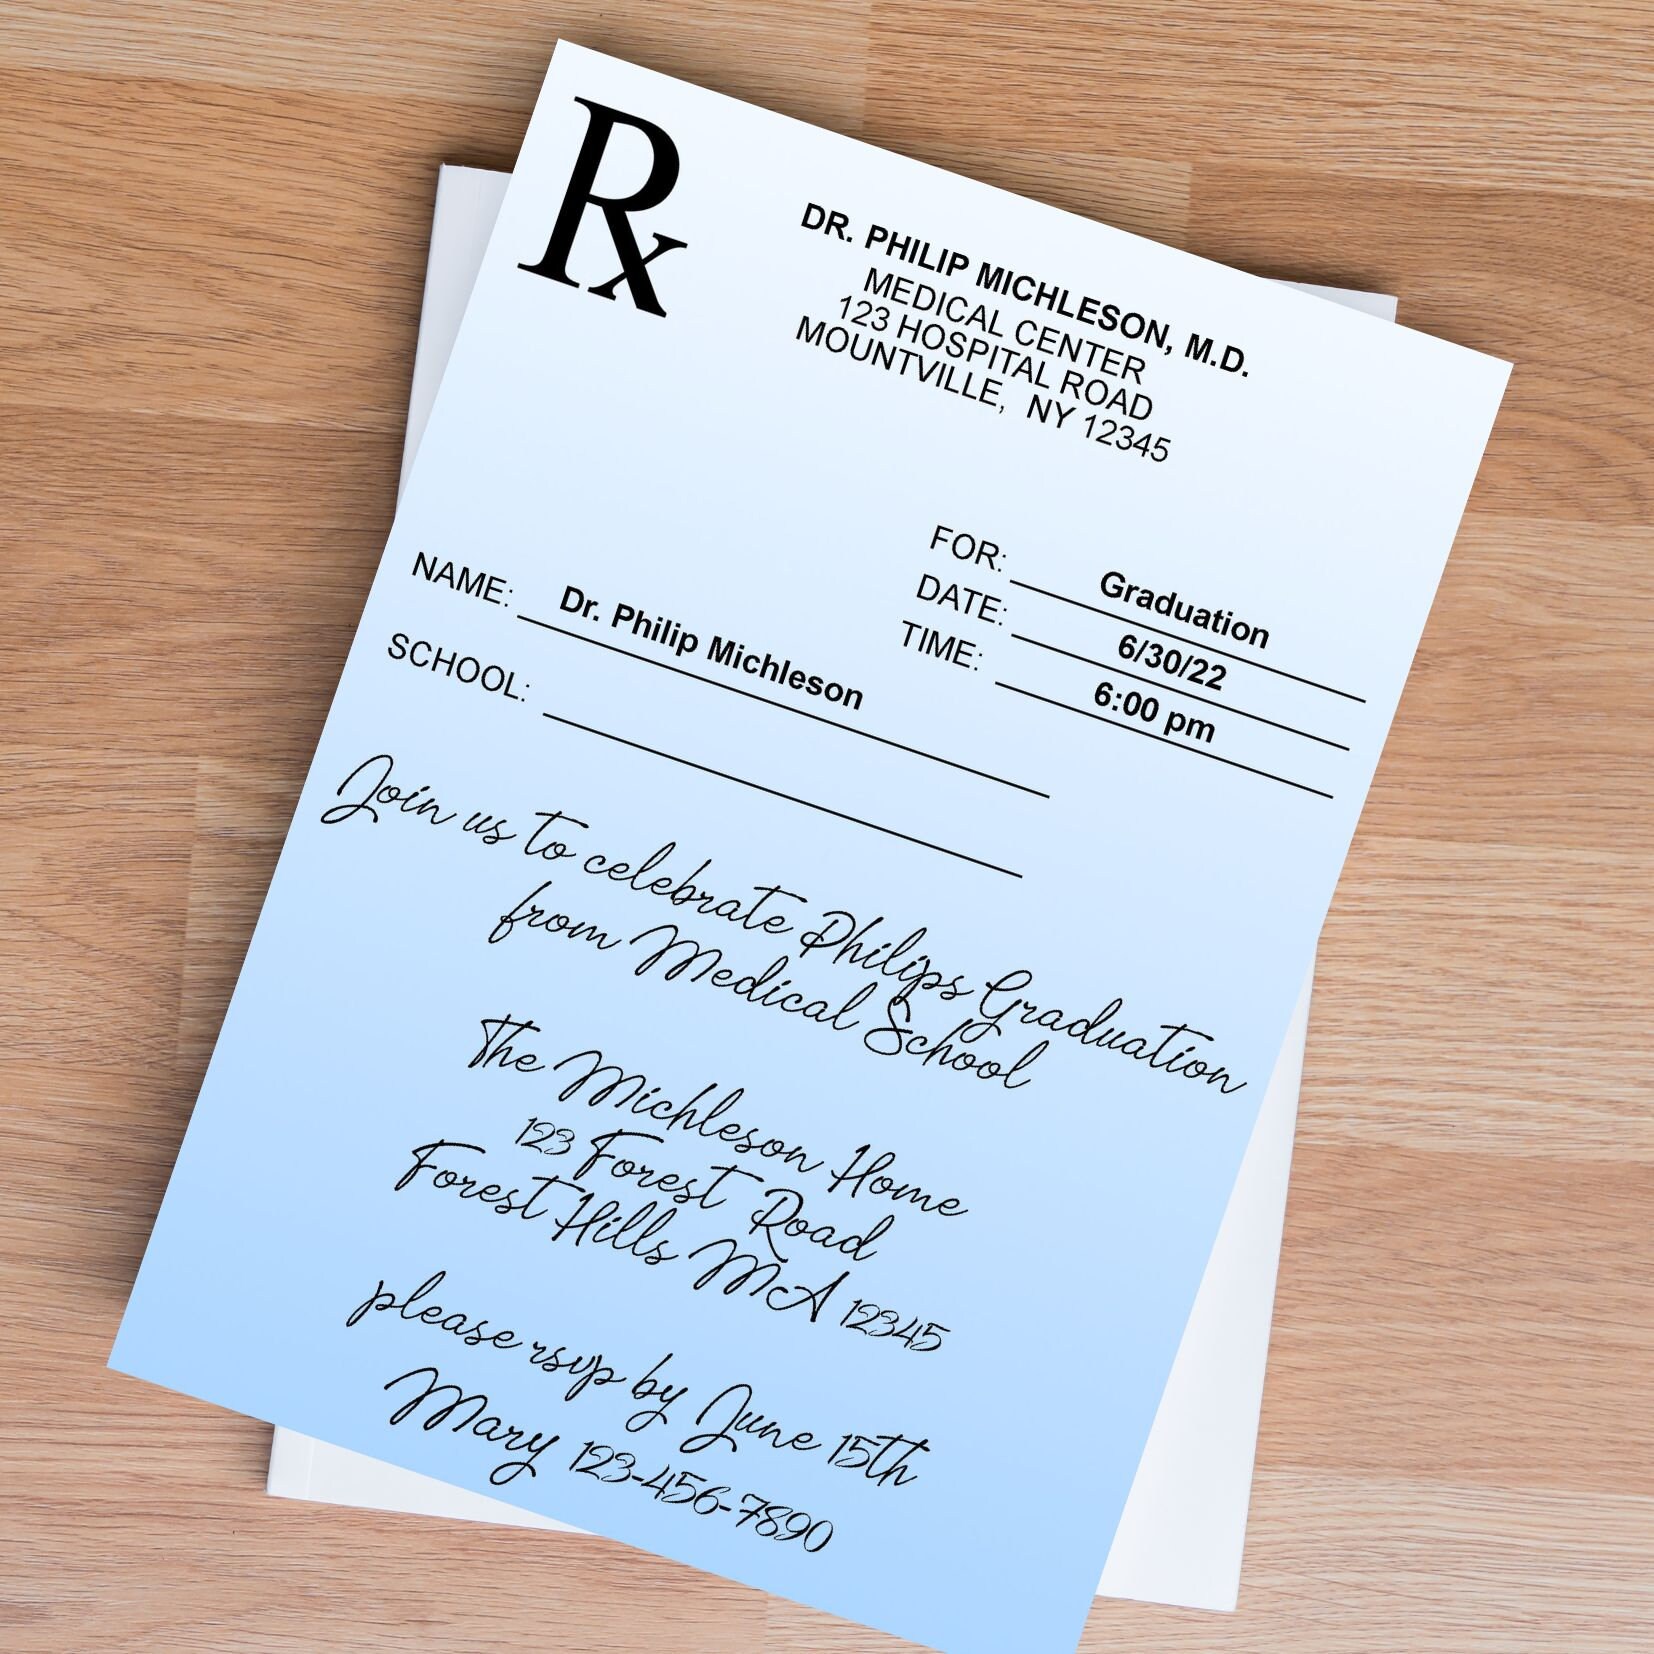 Rx
DR. PHILIP MICHLESON, M.D.
MEDICAL CENTER
123 HOSPITAL ROAD
MOUNTVILLE, NY 12345
FOR: Graduation
DATE: 6/30/22
TIME: 6:00 pm
NAME: Dr. Philip Michleson
SCHOOL:
Join us to celebrate Philips Graduation
from Medical School
The Michleson Home
123 Forest Road
Forest Hills MA 12345
please rsvp by June 15th
Mary 123-456-7890